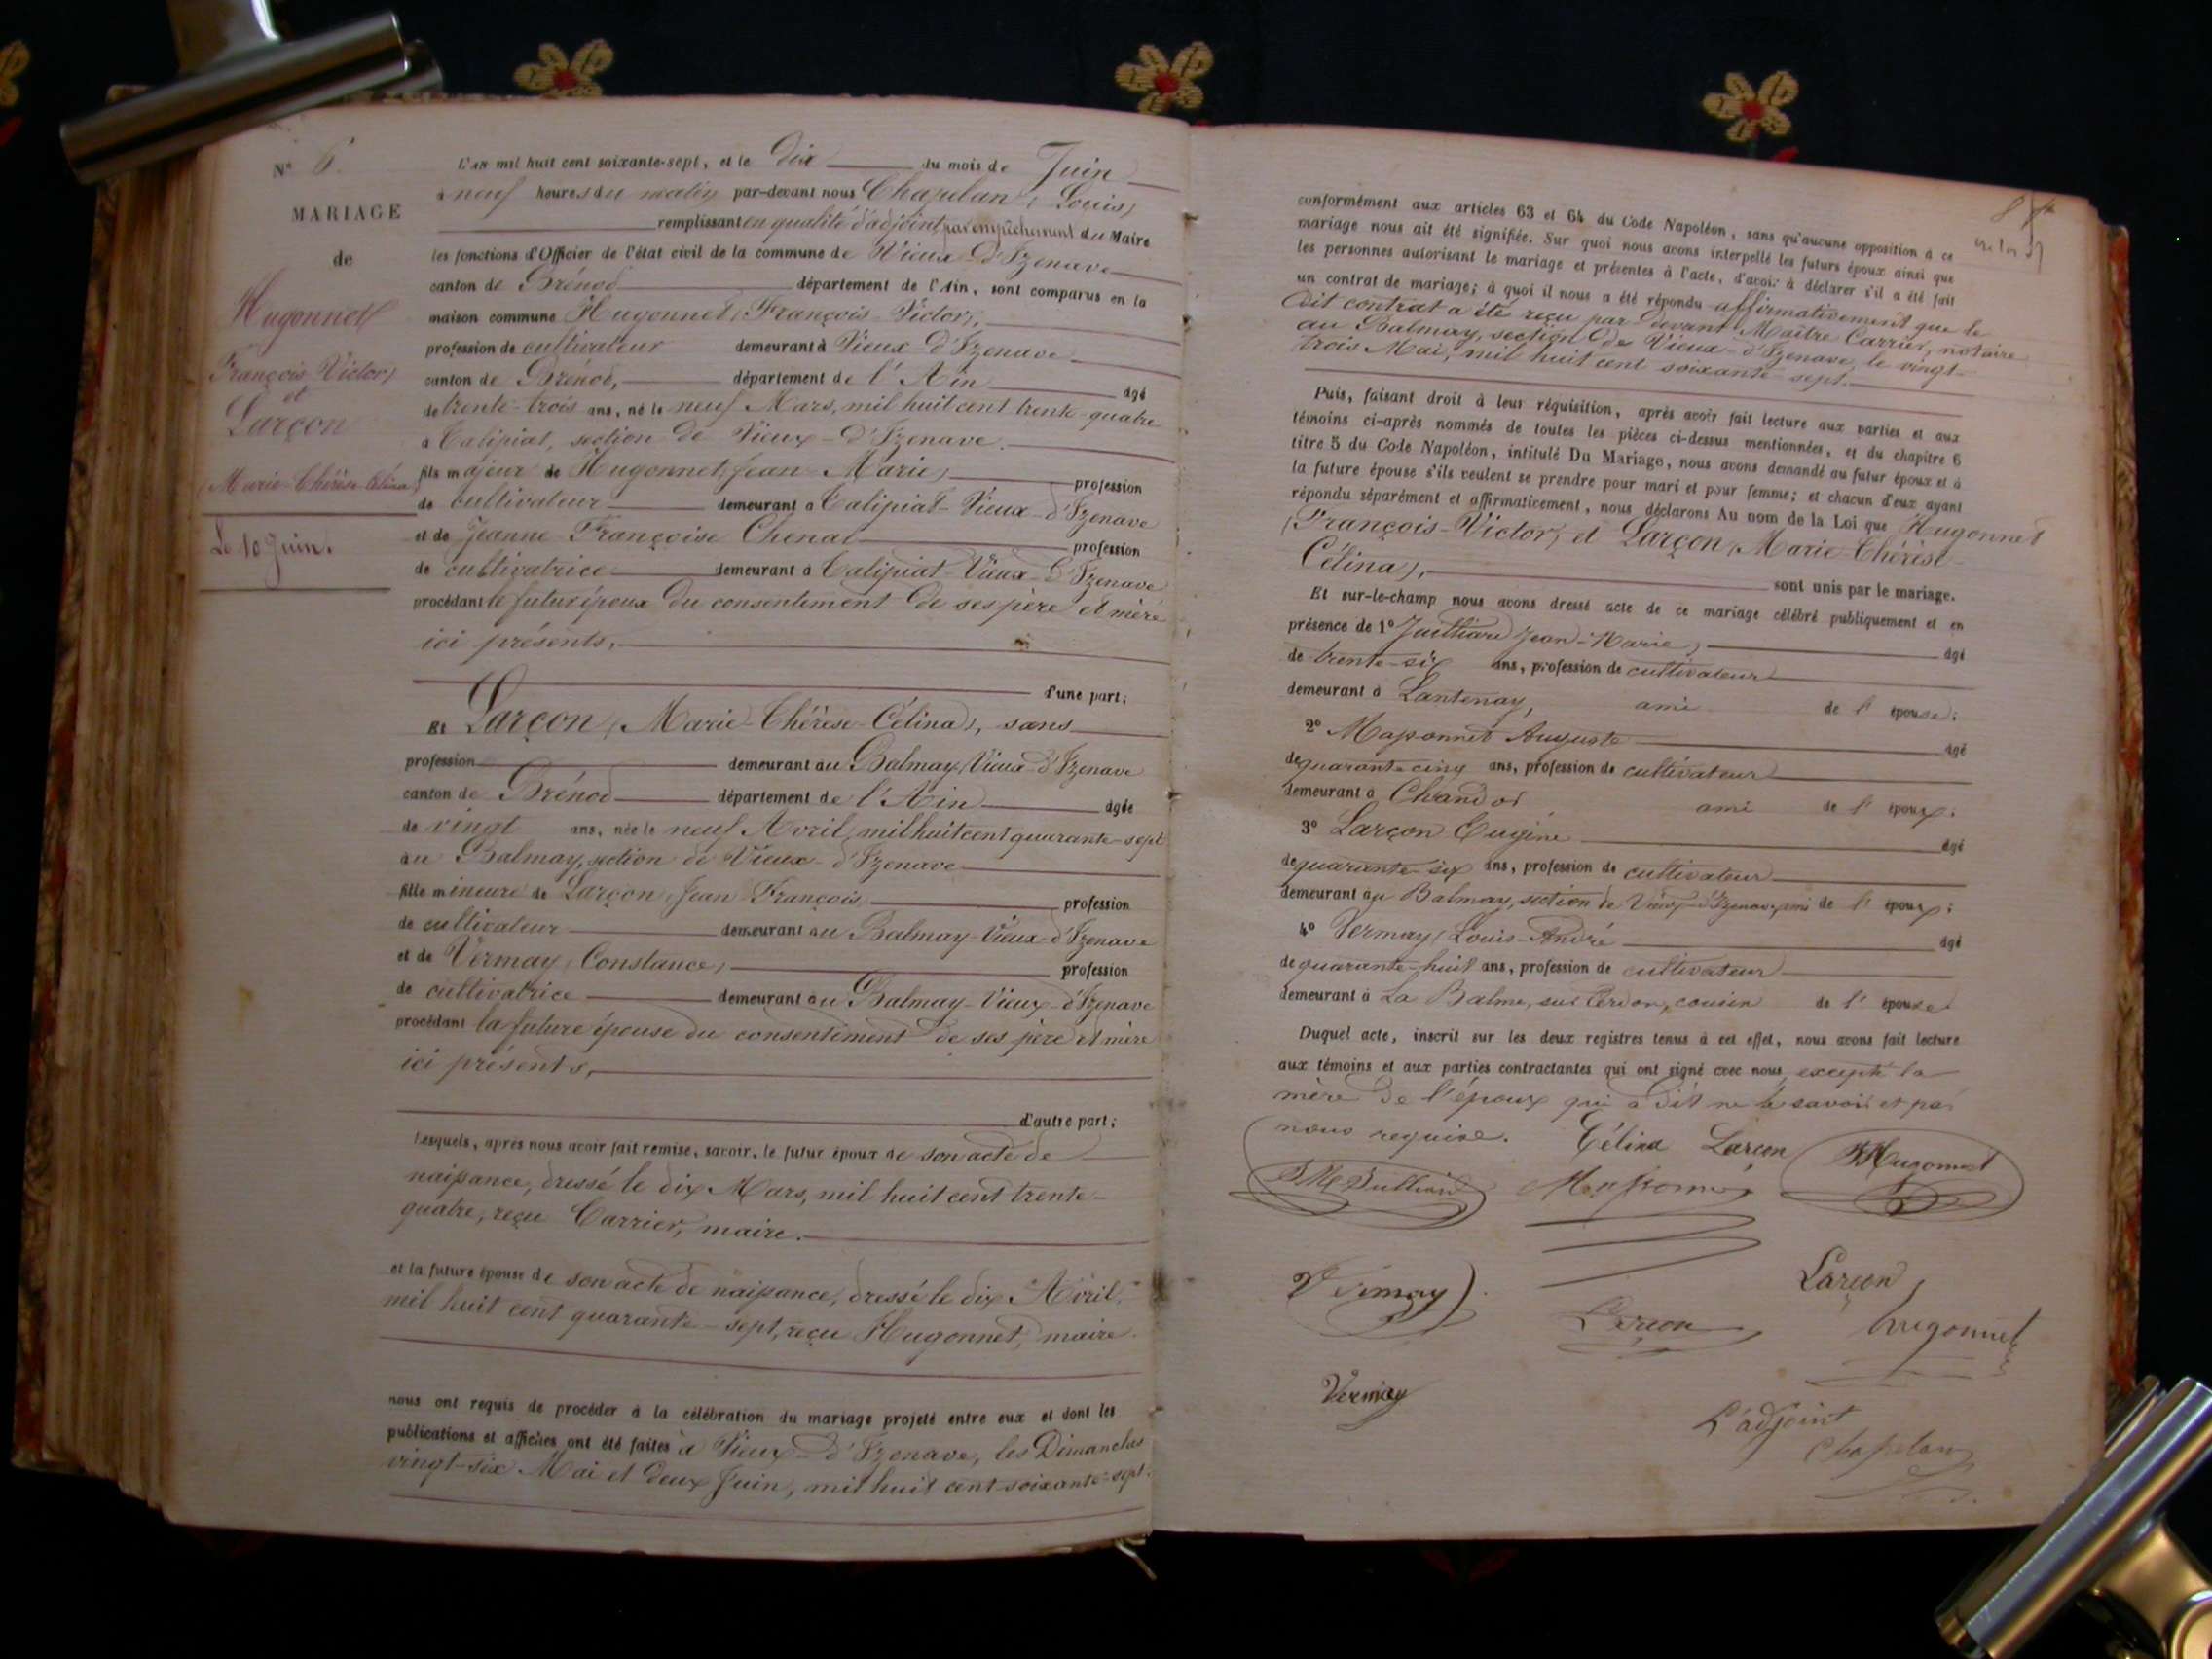 N° 6.
MARIAGE
de
Hugonnet
(François-Victor)
et
Larçon
(Marie-Thérèse-Célina)
Le 10 Juin.
L'an mil huit cent soixante-sept, et le Dix du mois de Juin
à neuf heures du matin par-devant nous Chapelan (Louis)
remplissant en qualité d'adjoint par empêchement du Maire
les fonctions d'Officier de l'état civil de la commune de Vieux-d'Izenave
canton de Brénod département de l'Ain, sont comparus en la
maison commune Hugonnet (François-Victor),
profession de cultivateur demeurant à Vieux-d'Izenave
canton de Brénod, département de l'Ain âgé
de trente-trois ans, né le neuf Mars, mil huit cent trente-quatre
à Talipiat, section de Vieux-d'Izenave
fils majeur de Hugonnet (Jean-Marie) profession
de cultivateur demeurant à Talipiat-Vieux-d'Izenave
et de Jeanne Françoise Chenal profession
de cultivatrice demeurant à Talipiat-Vieux-d'Izenave
procédant le futur époux du consentement de ses père et mère
ici présents,
d'une part;
Et Larçon (Marie-Thérèse-Célina), sans
profession demeurant au Balmay (Vieux-d'Izenave
canton de Brénod département de l'Ain âgée
de vingt ans, née le neuf Avril, mil huit cent quarante-sept
au Balmay, section de Vieux-d'Izenave
fille mineure de Larçon Jean François profession
de cultivateur demeurant au Balmay-Vieux-d'Izenave
et de Vermay (Constance) profession
de cultivatrice demeurant au Balmay-Vieux-d'Izenave
procédant la future épouse du consentement de ses père et mère
ici présents,
d'autre part;
Lesquels, après nous avoir fait remise, savoir, le futur époux de son acte de
naissance, dressé le dix Mars, mil huit cent trente-
quatre, reçu Carrier, maire.
et la future épouse de son acte de naissance, dressé le dix Avril,
mil huit cent quarante-sept, reçu Hugonnet, maire.
nous ont requis de procéder à la célébration du mariage projeté entre eux et dont les
publications et affiches ont été faites à Vieux-d'Izenave, les Dimanches
vingt-six Mai et deux Juin, mil huit cent soixante-sept.
conformément aux articles 63 et 64 du Code Napoléon, sans qu'aucune opposition à ce
mariage nous ait été signifiée. Sur quoi nous avons interpellé les futurs époux ainsi que
les personnes autorisant le mariage et présentes à l'acte, d'avoir à déclarer s'il a été fait
un contrat de mariage; à quoi il nous a été répondu affirmativement que le
dit contrat a été reçu par devant Maître Carrier, notaire
au Balmay, section de Vieux-d'Izenave, le vingt-
trois Mai, mil huit cent soixante-sept.
Puis, faisant droit à leur réquisition, après avoir fait lecture aux parties et aux
témoins ci-après nommés de toutes les pièces ci-dessus mentionnées, et du chapitre 6
titre 5 du Code Napoléon, intitulé Du Mariage, nous avons demandé au futur époux et à
la future épouse s'ils veulent se prendre pour mari et pour femme; et chacun d'eux ayant
répondu séparément et affirmativement, nous déclarons Au nom de la Loi que Hugonnet
(François-Victor) et Larçon (Marie-Thérèse-
Célina), sont unis par le mariage.
Et sur-le-champ nous avons dressé acte de ce mariage célébré publiquement et en
présence de 1° Juilliard Jean-Marie, âgé
de trente-six ans, profession de cultivateur
demeurant à Lantenay, ami de l'épouse;
2° Maponnet Auguste âgé
de quarante-cinq ans, profession de cultivateur
demeurant à Chandor ami de l'époux;
3° Larçon Eugène âgé
de quarante-six ans, profession de cultivateur
demeurant au Balmay, section de Vieux-d'Izenave, ami de l'époux;
4° Vermay (Louis-André âgé
de quarante-huit ans, profession de cultivateur
demeurant à La Balme, sur Cerdon, cousin de l'épouse.
Duquel acte, inscrit sur les deux registres tenus à cet effet, nous avons fait lecture
aux témoins et aux parties contractantes qui ont signé avec nous, excepté la
mère de l'époux qui a dit ne le savoir et par
nous requise.
Célina Larçon
Hugonnet
Vermay
Larçon
Larçon
hugonnet
Vermay
L'adjoint
Chapelan